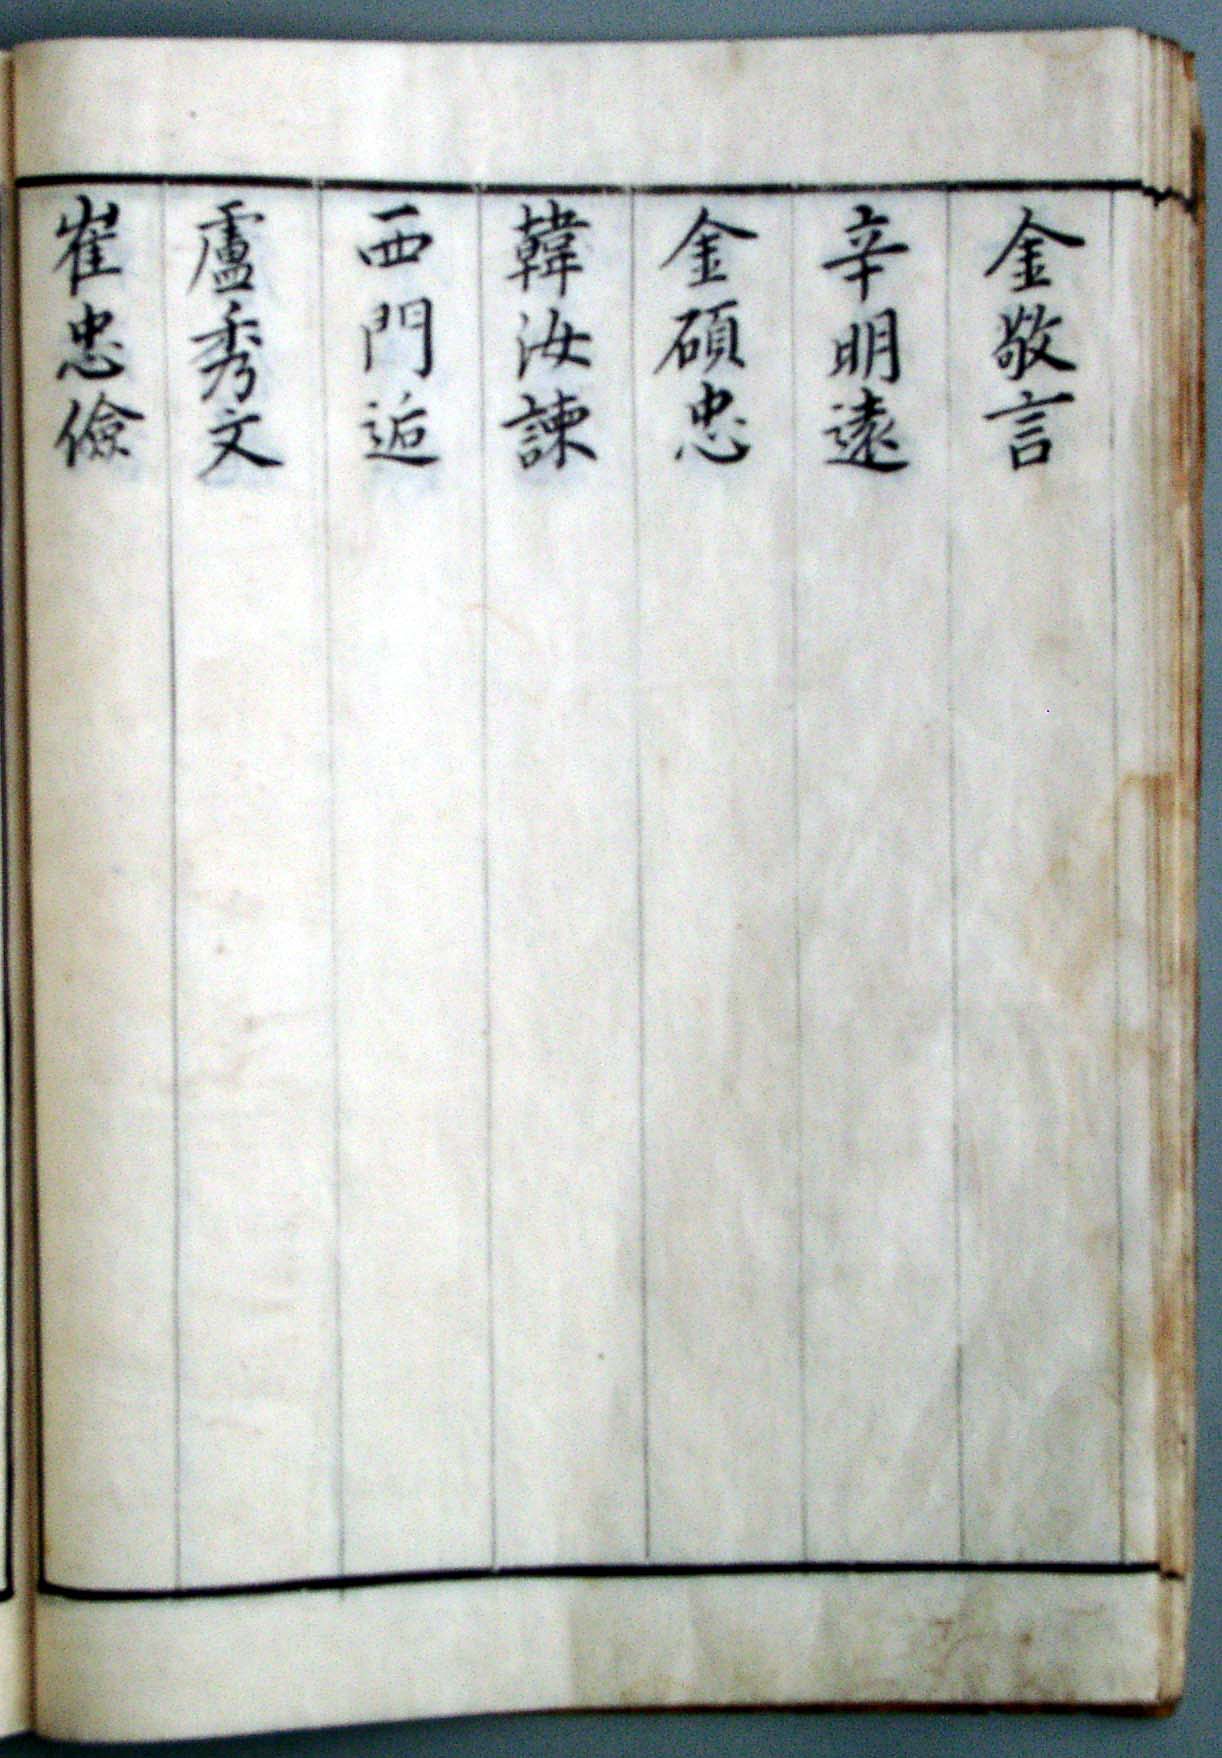 金敬言
辛明遠
金碩忠
韓汝諫
西門逅
盧秀文
崔忠儉